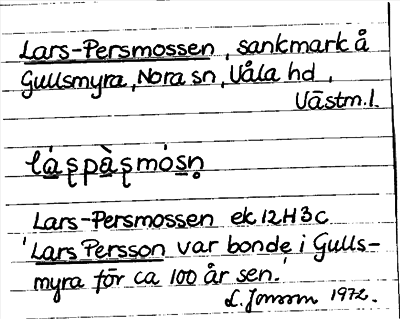 Lars-Persmossen, sankmark å
Gullsmyra, Nora sn, Våla hd,
Västm.l.
lá̱ʂpà̱ʂmósn̥
Lars-Persmossen ek 12H3c
'Lars Persson var bonde i Gulls-
myra för ca 100 år sen.'
L. Jonsson 1972.